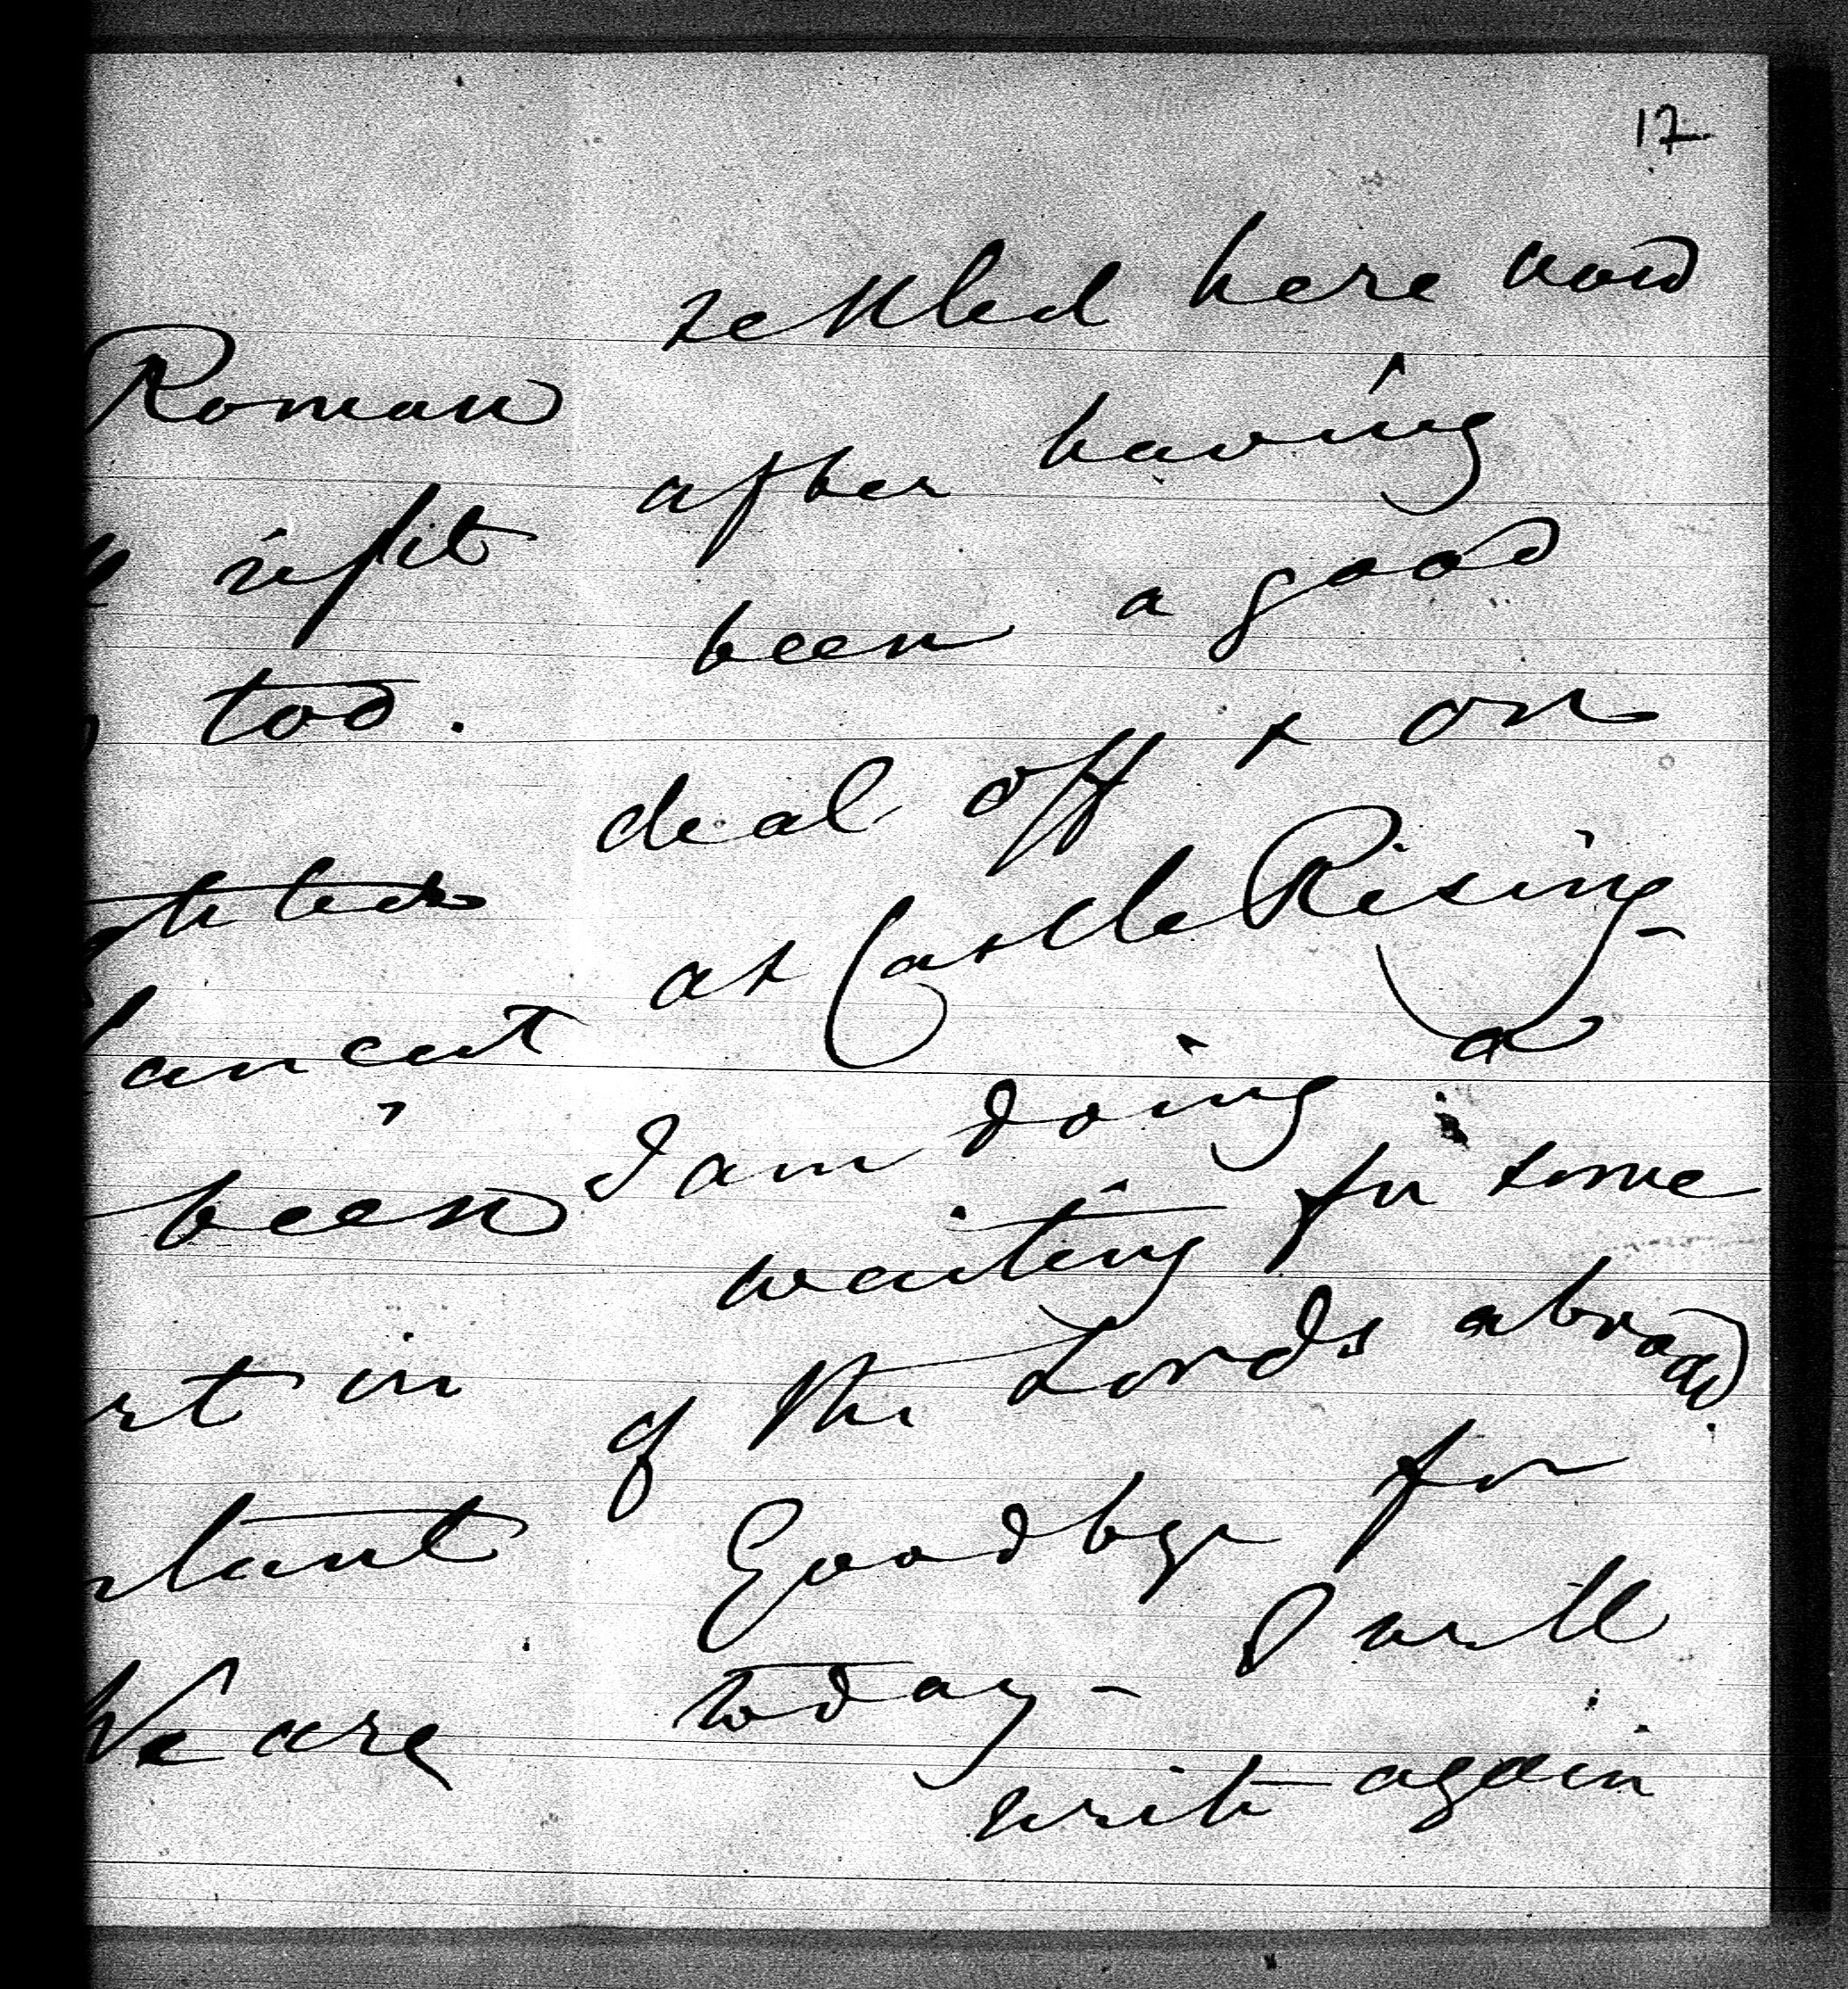 17
Roman
too.
been
in
We are
settled here now
after having
been a good
deal off & on
at Castle Rising -
I am doing a
waiting for some
of the Lords abroad.
Goodbye for
today - I will
write again